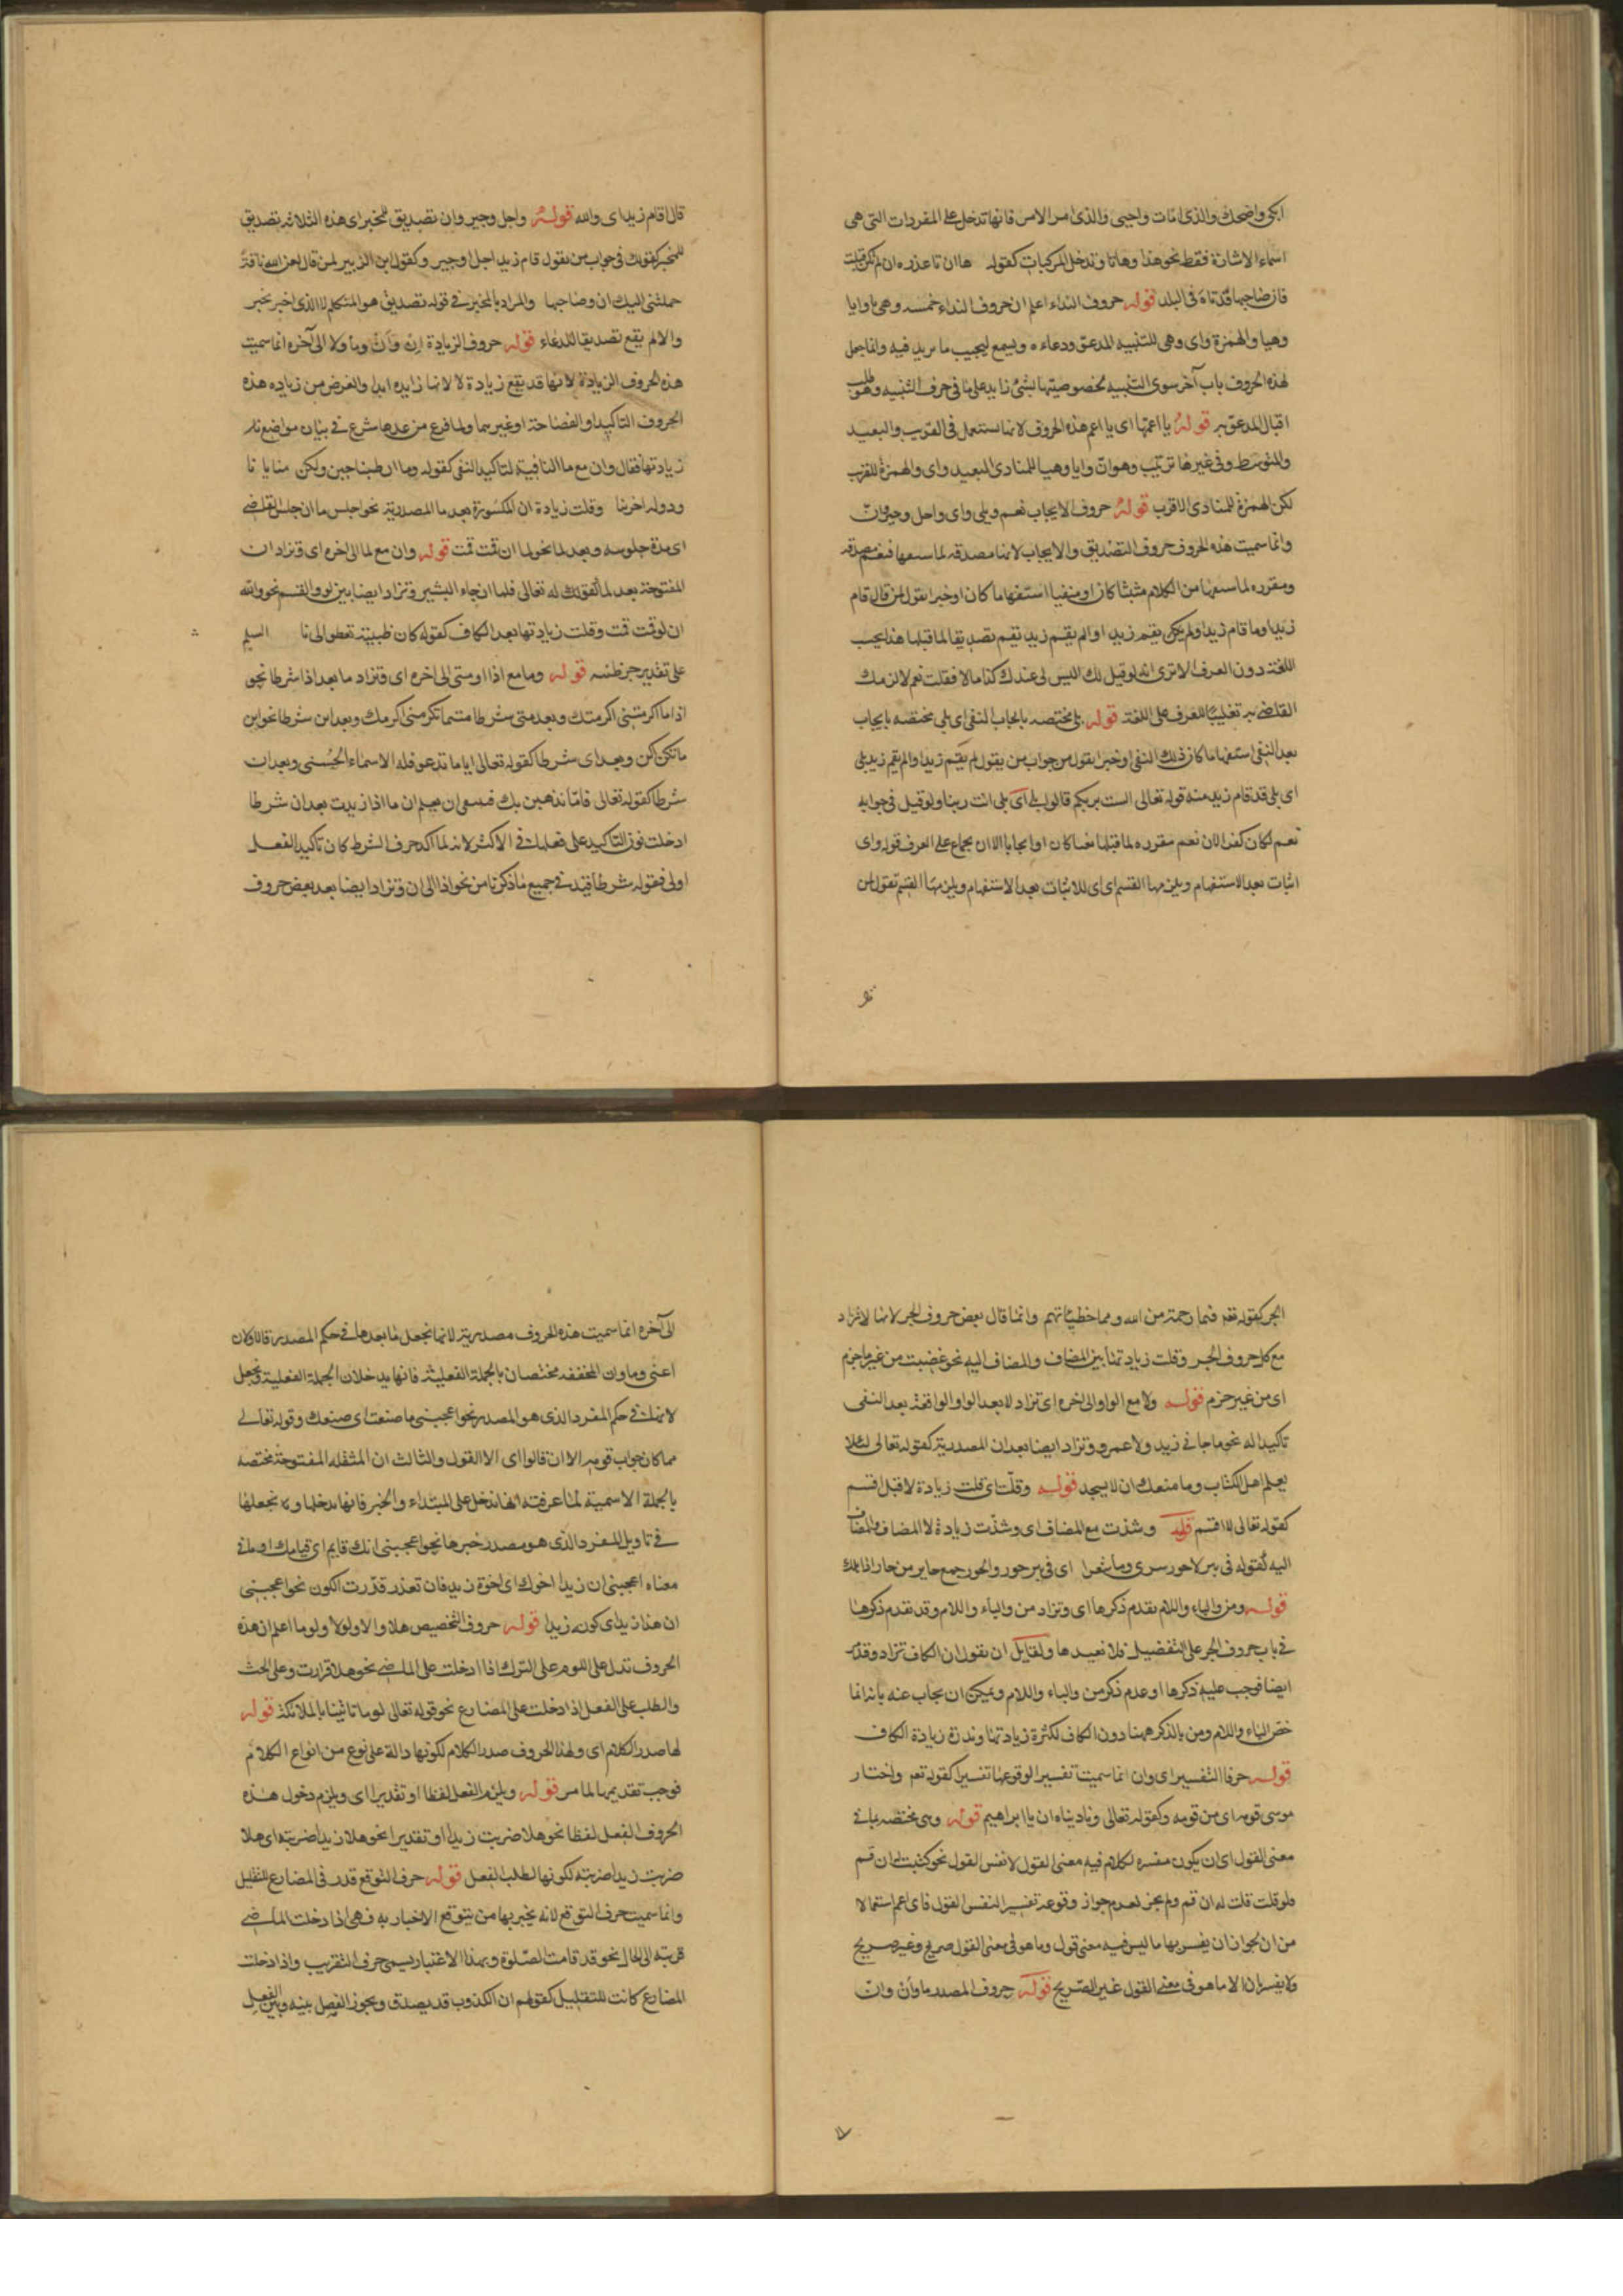 ابكى واضحك والذى امات واحيى والذى امره الامر فانها تدخل على المفردات التى هى
اسماء الاشارة فقط نحو هذا وهاتا وتدخل المركبات كقوله ها ان تا عذره ان لم تكن قبلت
فان صاحبها قد تاه فى البلد قوله حروف النداء اعلم ان حروف النداء خمسه وهى يا وايا
وهيا والهمزة واى وهى للتنبيه المدعو ودعاءه ويسمع ليجيب ما يريد فيه وانما جعل
لهذه الحروف باب آخر سوى التنبيه لخصوصيتها بشئ زايد على ما فى حرف التنبيه وهو طلب
اقبال المدعو به قوله يا اعمها اى يا اعم هذه الحروف لانها تستعمل فى القريب والبعيد
والمتوسط وفى غيرها ترتيب وهو ان وايا وهيا للمنادى البعيد واى والهمزة للقريب
لكن الهمزة للمنادى الاقرب قوله حروف الايجاب نعم وبلى واى واجل وجير وان
وانما سميت هذه الحروف حروف التصديق والايجاب لانها مصدقه لما سبقها فنعم مصدقه
ومقرره لما سبقها من الكلام مثبتا كان او منفيا استفهاما كان او خبرا تقول لمن قال قام
زيد او ما قام زيد او لم يكن يقم زيد او الم يقم زيد نعم تصديقا لما قبلها هذا بحسب
اللغة دون العرف الا ترى انه لو قيل لك اليس لى عندك كذا مالا فقلت نعم لالزمك
القاضى به تغليبا للعرف على اللغة قوله بلى مختصه بايجاب النفى اى بلى مختصه بايجاب
بعد النفى استفهاما كان ذلك النفى او خبرا تقول من جواب من يقول لم يقم زيد او الم يقم زيد بلى
اى بلى قد قام زيد منه قوله تعالى الست بربكم قالوا بلى اى بلى انت ربنا ولو قيل فى جوابه
نعم لكان كفرا لان نعم مقرره لما قبلها نفيا كان او ايجابا الا ان يحمل على العرف قوله واى
اثبات بعد الاستفهام ويلزمها القسم اى اى للاثبات بعد الاستفهام ويلزمها القسم تقول لمن
قال اقام زيد اى والله قوله واجل وجير وان تصديق للمخبر اى هذه الثلاثه تصديق
للمخبر كقولك فى جواب من يقول قام زيد اجل او جير وكقول ابن الزبير لمن قال لعن الله ناقة
حملتنى اليك ان وصاحبها والمراد بالمخبر فى قوله تصديق هو المتكلم لا الذى اخبر بخبر
والا لم يقع تصديقا للدعاء قوله حروف الزيادة ان وأن وما ولا الى آخره انما سميت
هذه الحروف الزيادة لانها قد تقع زيادة لا لانها زايده ابدا والغرض من زياده هذه
الحروف التاكيد او الفصاحة او غيرهما ولما فرغ من عدها شرع فى بيان مواضع
زيادتها فقال وان مع ما النافية لتاكيد النفى كقوله وما ان طبنا جبن ولكن منايانا
ودولة اخرينا وقلت زيادة ان المكسورة بعد ما المصدرية نحو اجلس ما ان جلس القاضى
اى مدة جلوسه وبعد لما نحو لما ان قمت قمت قوله وان مع لما الى اخره اى وتزاد ان
المفتوحة بعد لما كقوله تعالى فلما ان جاء البشير وتزاد ايضا بين لو والقسم نحو والله
ان لو قمت قمت وقلت زيادتها بعد الكاف كقوله كان ظبية تعطو الى نا السلم
على تقدير جر ظبيه قوله وما مع اذا ومتى الى اخره اى وتزاد ما بعد اذا شرطا نحو
اذا ما اكرمتنى اكرمتك وبعد متى شرطا متى ما تكرمنى اكرمك وبعد اين شرطا نحو اين
ما تكن اكن وبعد اى شرطا كقوله تعالى ايا ما تدعو فله الاسماء الحسنى وبعد ان
شرطا كقوله تعالى فاما نذهبن بك فينبغى ان يعلم ان ما اذا زيدت بعد ان شرطا
ادخلت نون التاكيد على فعلها فى الاكثر لانه لما اكد حرف الشرط كان تاكيد الفعل
اولى فقوله شرطا قيد فى جميع ما ذكرنا من نحو اذا الى ان وتزاد ايضا بعد بعض حروف
الجر كقوله تعه فبما رحمة من الله ومما خطيئاتهم وانما قال بعض حروف الجر لانها لا تزاد
مع كل حروف الجر وقلت زيادتها بين المضاف والمضاف اليه نحو غضبت من غير ما جرم
اى من غير جرم قوله ولا مع الواو الى اخره اى تزاد لا بعد الواو الواقعة بعد النفى
تاكيدا له نحو ما جاءنى زيد ولا عمرو وتزاد ايضا بعد ان المصدرية كقوله تعالى لئلا
يعلم اهل الكتاب وما منعك ان لا يسجد قوله وقلت اى قلت زيادة لا قبل اقسم
كقوله تعالى لا اقسم قوله وشذت مع المضاف اى وشذت زيادة لا المضاف والمضاف
اليه كقوله فى بير لا حور سرى وما شعرا اى فى بير حور والحور جمع حاير من حار اذا هلك
قوله ومن والباء واللام تقدم ذكرها اى وتزاد من والباء واللام وقد تقدم ذكرها
فى باب حروف الجر على التفضيل فلا نعيدها ولقايل ان يقول ان الكاف تزاد وقد
ايضا فوجب عليه ذكرها او عدم ذكر من والباء واللام ويمكن ان يجاب عنه بانه انما
خص الباء واللام ومن بالذكر ههنا دون الكاف لكثرة زيادتها وندرة زيادة الكاف
قوله حرفا التفسير اى وان انما سميتا تفسير الوقوعها تفسيرا كقوله تعه واختار
موسى قومه اى من قومه وكقوله تعالى وناديناه ان يا ابراهيم قوله وهى مختصه بما فى
معنى القول اى ان يكون مفسره لكلام فيه معنى القول لا نفس القول نحو كتبت له ان قم
فلو قلت قلت له ان قم ولم يجز لعدم جواز وقوعه تفسير النفس القول فاى اعم استعمالا
من ان لجواز ان يفسر بها ما ليس فيه معنى قول وما هو فى معنى القول صريح وغير صريح
ولا يفسر بان الا ما هو فى معنى القول غير الصريح قوله حروف المصدر ما وأن وان
الى آخره انما سميت هذه الحروف مصدرية لانها تجعل ما بعدها فى حكم المصدر فالاولان
اعنى وما وان المخففه مختصان بالجملة الفعلية فانها يدخلان الجملة الفعلية وتجعل
لانها فى حكم المفرد الذى هو المصدر نحو اعجبنى ما صنعت اى صنعك وقوله تعالى
فما كان جواب قومه الا ان قالوا اى الا القول والثالث ان المثقله المفتوحة مختصه
بالجملة الاسمية لما عرفت انها تدخل على المبتداء والخبر فانها تدخلها وتجعلها
فى تاويل المفرد الذى هو مصدر خبرها نحو اعجبنى انك قايم اى قيامك او ما فى
معناه اعجبنى ان زيدا اخوك اى اخوة زيد فان تعذر قدرت الكون نحو اعجبنى
ان هذا زيد اى كونه زيدا قوله حروف التخصيص هلا والا ولولا ولوما اعلم ان هذه
الحروف تدل على اللوم على الترك اذا ادخلت على الماضى نحو هلا قرات وعلى الحث
والطلب على الفعل اذا دخلت على المضارع نحو قوله تعالى لوما تاتينا بالملائكة قوله
لها صدر الكلام اى ولهذا الحروف صدر الكلام لكونها دالة على نوع من انواع الكلام
فوجب تقديمها لما مر قوله ويلزم الفعل لفظا او تقديرا اى ويلزم دخول هذه
الحروف الفعل لفظا نحو هلا ضربت زيدا او تقديرا نحو هلا زيدا ضربته اى هلا
ضربت زيدا ضربته لكونها لطلب الفعل قوله حرف التوقع قد وفى المضارع للتقليل
وانما سميت حرف التوقع لانه يخبر بها من يتوقع الاخبار به فهى اذا دخلت الماضى
قربته الى الحال نحو قد قامت الصلوة وبهذا الاعتبار يسمى حرف التقريب واذا دخلت
المضارع كانت للتقليل كقولهم ان الكذوب قد يصدق ويجوز الفصل بينه وبين الفعل